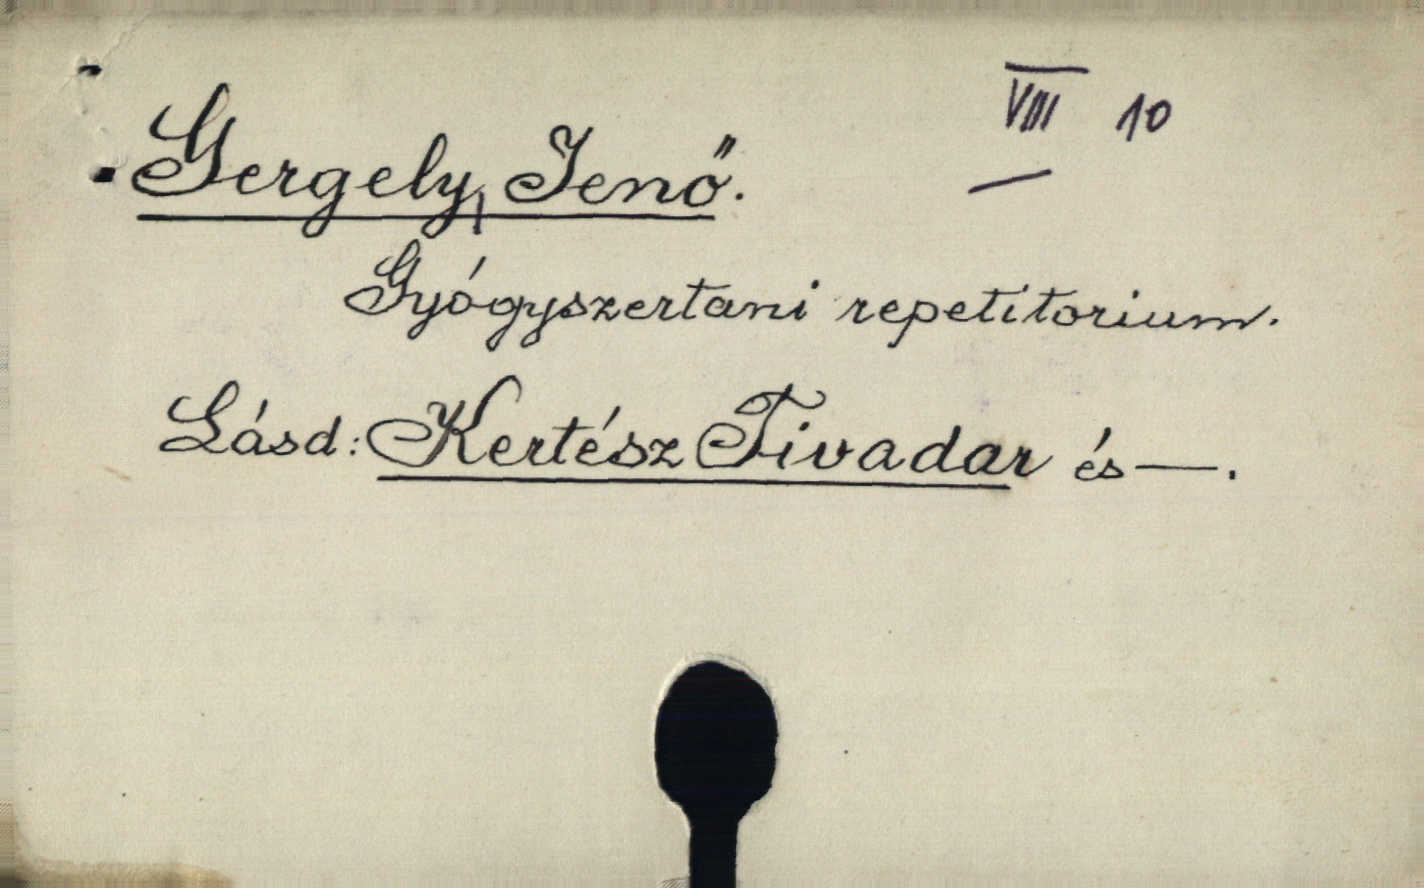 VIII 10
Gergely, Jenő.
Gyógyszertani repetitorium.
Lásd: Kertész Tivadar és —.